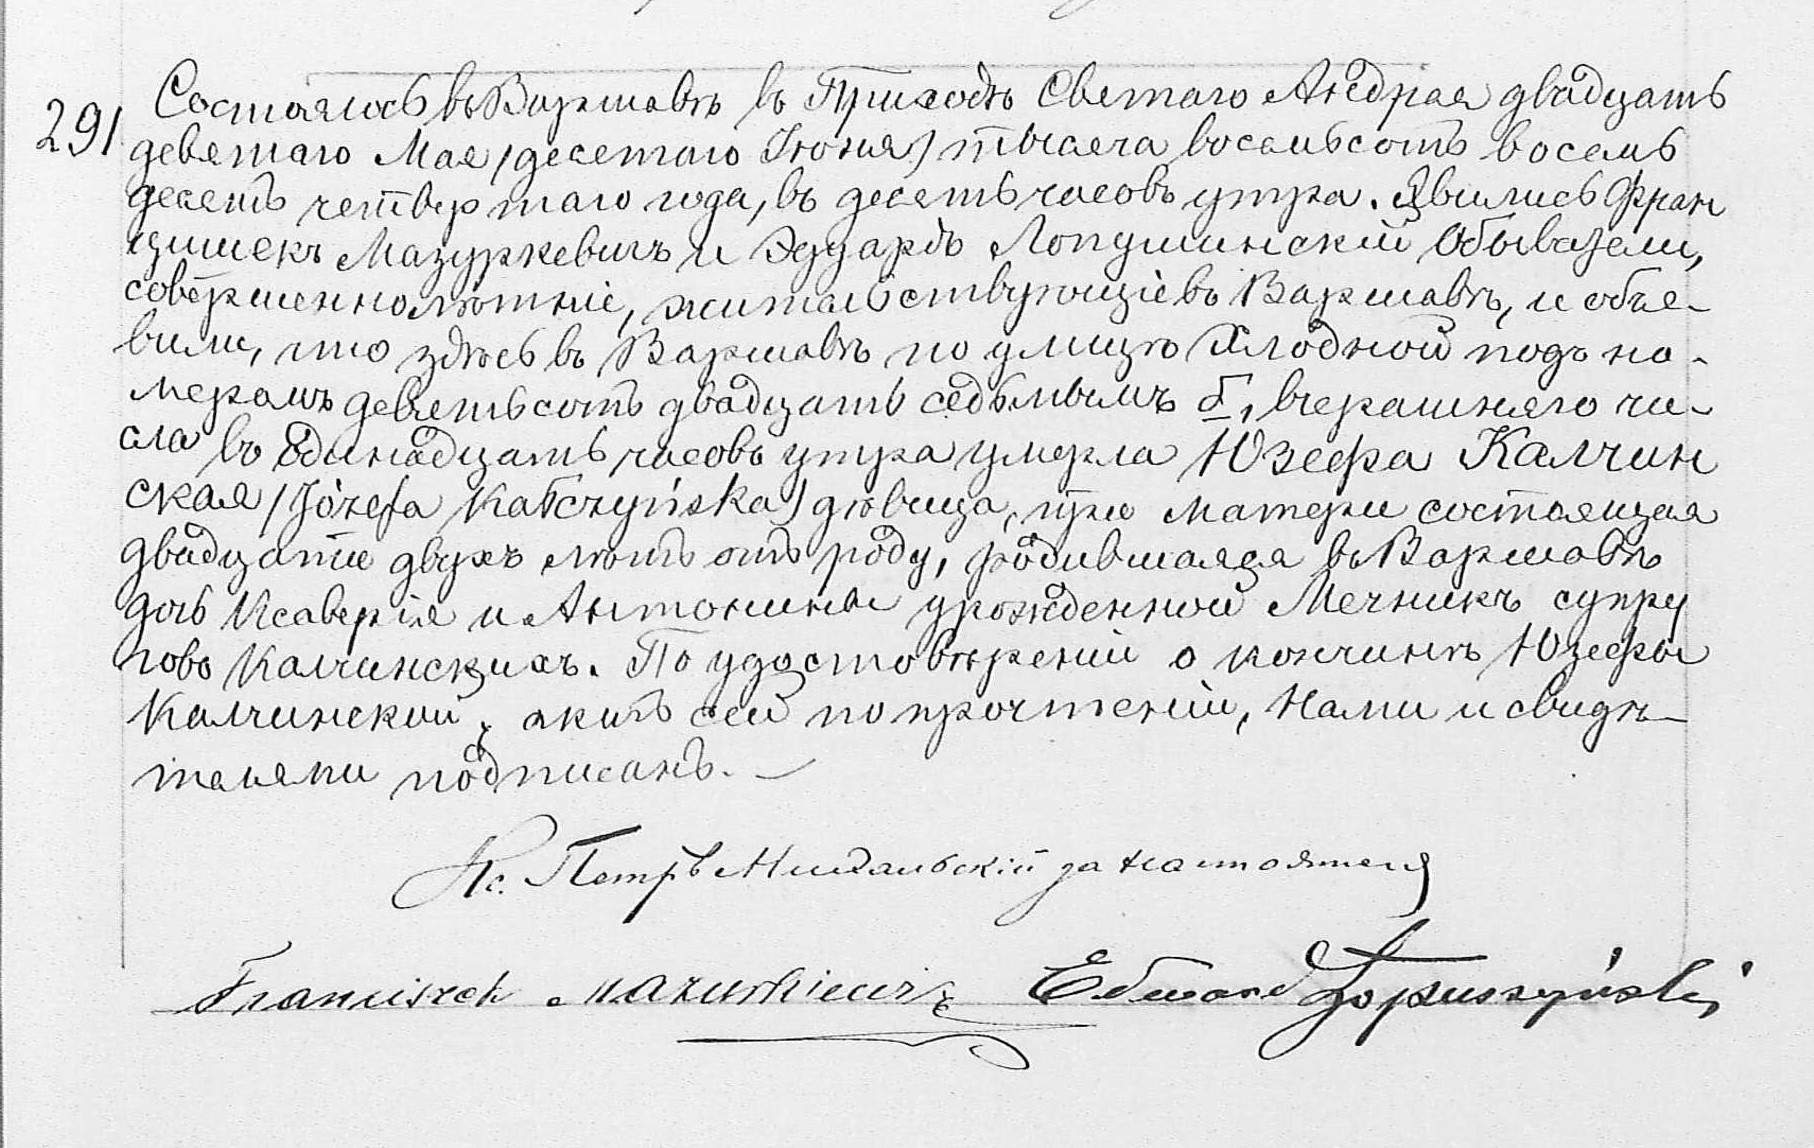 291 Состоялось въ Варшавѣ въ Приходѣ Светаго Андрея двадцать
деветаго Мая /десетаго Іюня/ тысеча восемьсотъ восемь
десетъ четвертаго года, въ десеть часовъ утра. Явились Фран
цишекъ Мазуркевичъ и Эдуардъ Лопушинскій Обыватели,
совершеннолѣтніе, жительствующіе въ Варшавѣ, и объе-
вили, что здѣсь въ Варшавѣ по улицѣ Хлодной подъ но-
меромъ деветьсотъ двадцать седьмымъ б, вчерашняго чи-
сла въ одинадцать часовъ утра умерла Юзефа Калчин
ская /Józefa Kałczyńska/ дѣвица, при матери состоящая
двадцати двухъ лѣтъ отъ роду, родившаяся въ Варшавѣ
дочь Ксаверія и Антонины урожденной Мечникъ супру
говъ Калчинскихъ. По удостовѣреніи о кончинѣ Юзефы
Калчинской, актъ сей по прочтеніи, Нами и свидѣ-
телями подписанъ. —
Кс. Петръ Михальскій за настоятеля
Franciszek Mazurkiewicz Edward Łopuszyński